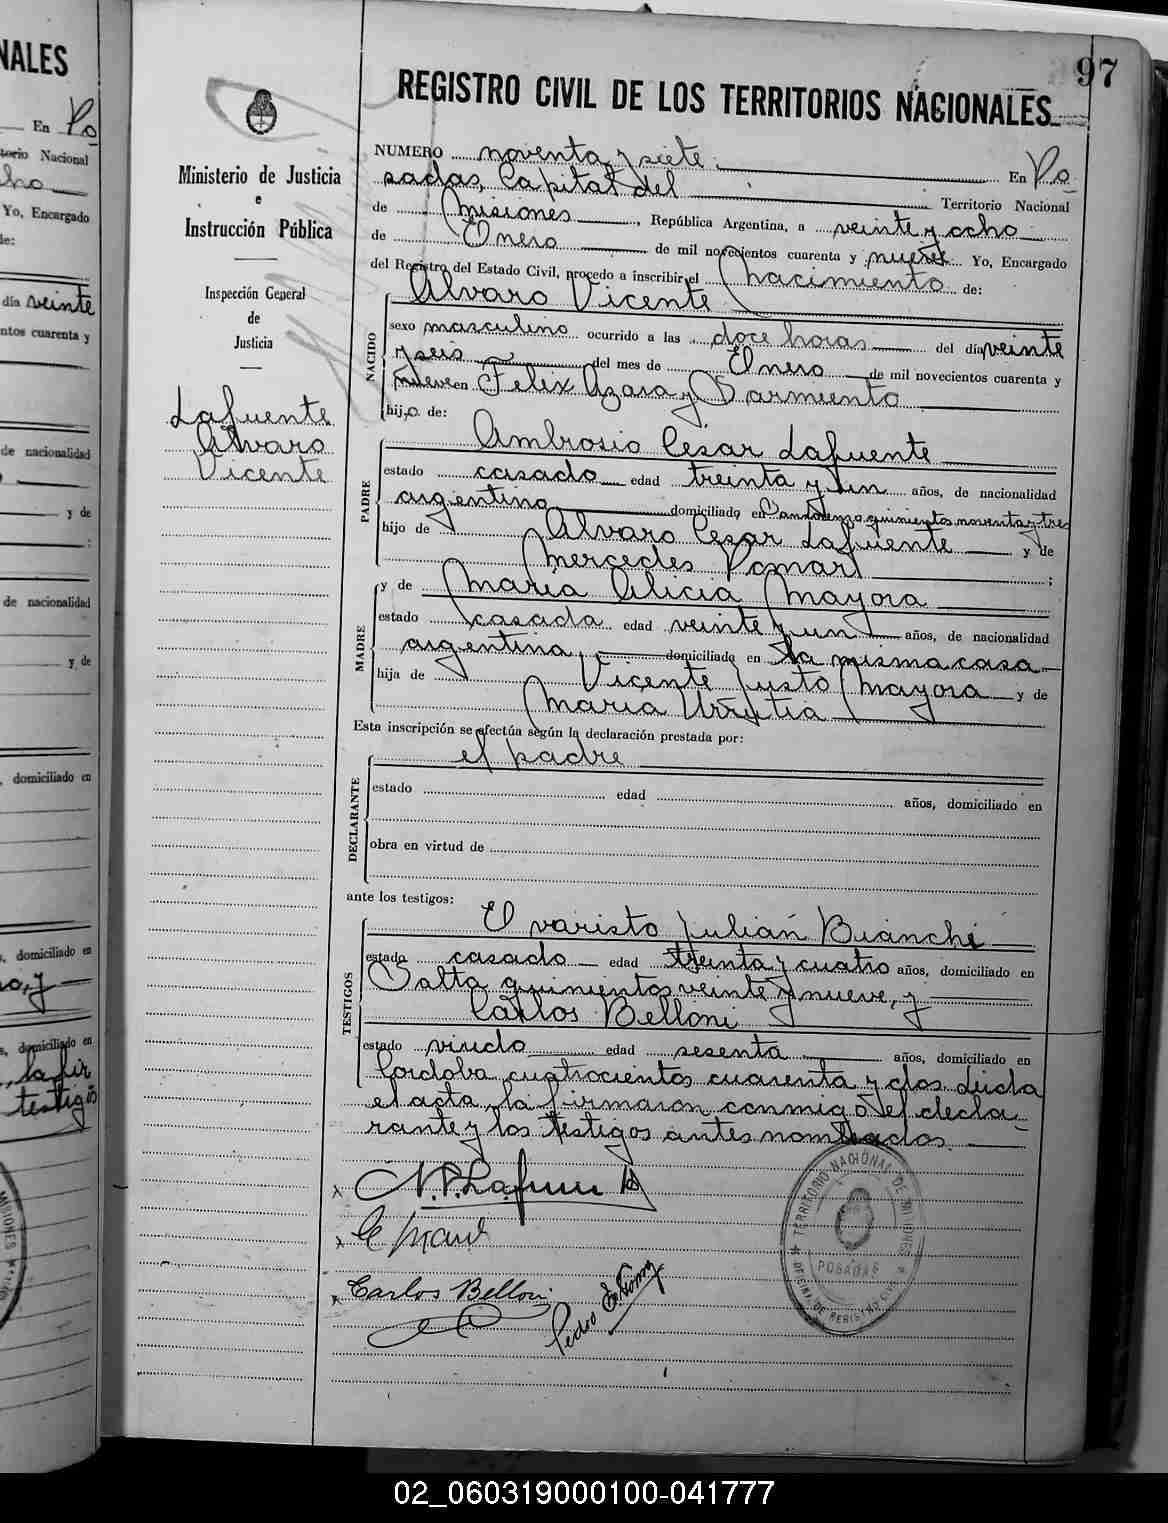 NALES
En Po
torio Nacional
cho
Yo, Encargado
de:
día veinte
ntos cuarenta y
de nacionalidad
y de
de nacionalidad
y de
, domiciliado en
s, domiciliado en
s, domiciliado en
la fir
testigos
MISIONES
97
REGISTRO CIVIL DE LOS TERRITORIOS NACIONALES
Ministerio de Justicia
e
Instrucción Pública
Inspección General
de
Justicia
Lafuente
Alvaro
Vicente
NUMERO noventa y siete En Po
sadas, Capital del Territorio Nacional
de Misiones, República Argentina, a veinte y ocho
de Enero de mil novecientos cuarenta y nueve Yo, Encargado
del Registro del Estado Civil, procedo a inscribir el nacimiento de:
NACIDO
Alvaro Vicente
sexo masculino ocurrido a las doce horas del día veinte
y seis del mes de Enero de mil novecientos cuarenta y
nueve en Felix Azara y Sarmiento
hijo de:
PADRE
Ambrosio Cesar Lafuente
estado casado edad treinta y un años, de nacionalidad
argentina domiciliado en San Lorenzo quinientos noventa y tres
hijo de Alvaro Cesar Lafuente y de
Mercedes Pomar ;
MADRE
y de Maria Alicia Mayora
estado casada edad veinte y un años, de nacionalidad
argentina, domiciliado en la misma casa
hija de Vicente Justo Mayora y de
Maria Urrutia
Esta inscripción se efectúa según la declaración prestada por:
el padre
DECLARANTE
estado edad años, domiciliado en
obra en virtud de
ante los testigos:
TESTIGOS
Evaristo Julián Bianchi
estado casado edad treinta y cuatro años, domiciliado en
Salta quinientos veinte y nueve, y
Carlos Belloni
estado viudo edad sesenta años, domiciliado en
Cordoba cuatrocientos cuarenta y dos. Leída
el acta, la firmaron conmigo el decla
rante y los testigos antes nombrados.
Carlos Belloni
Pedro
TERRITORIO NACIONAL DE MISIONES
POSADAS
OFICINA DE REGISTRO CIVIL
02_060319000100-041777